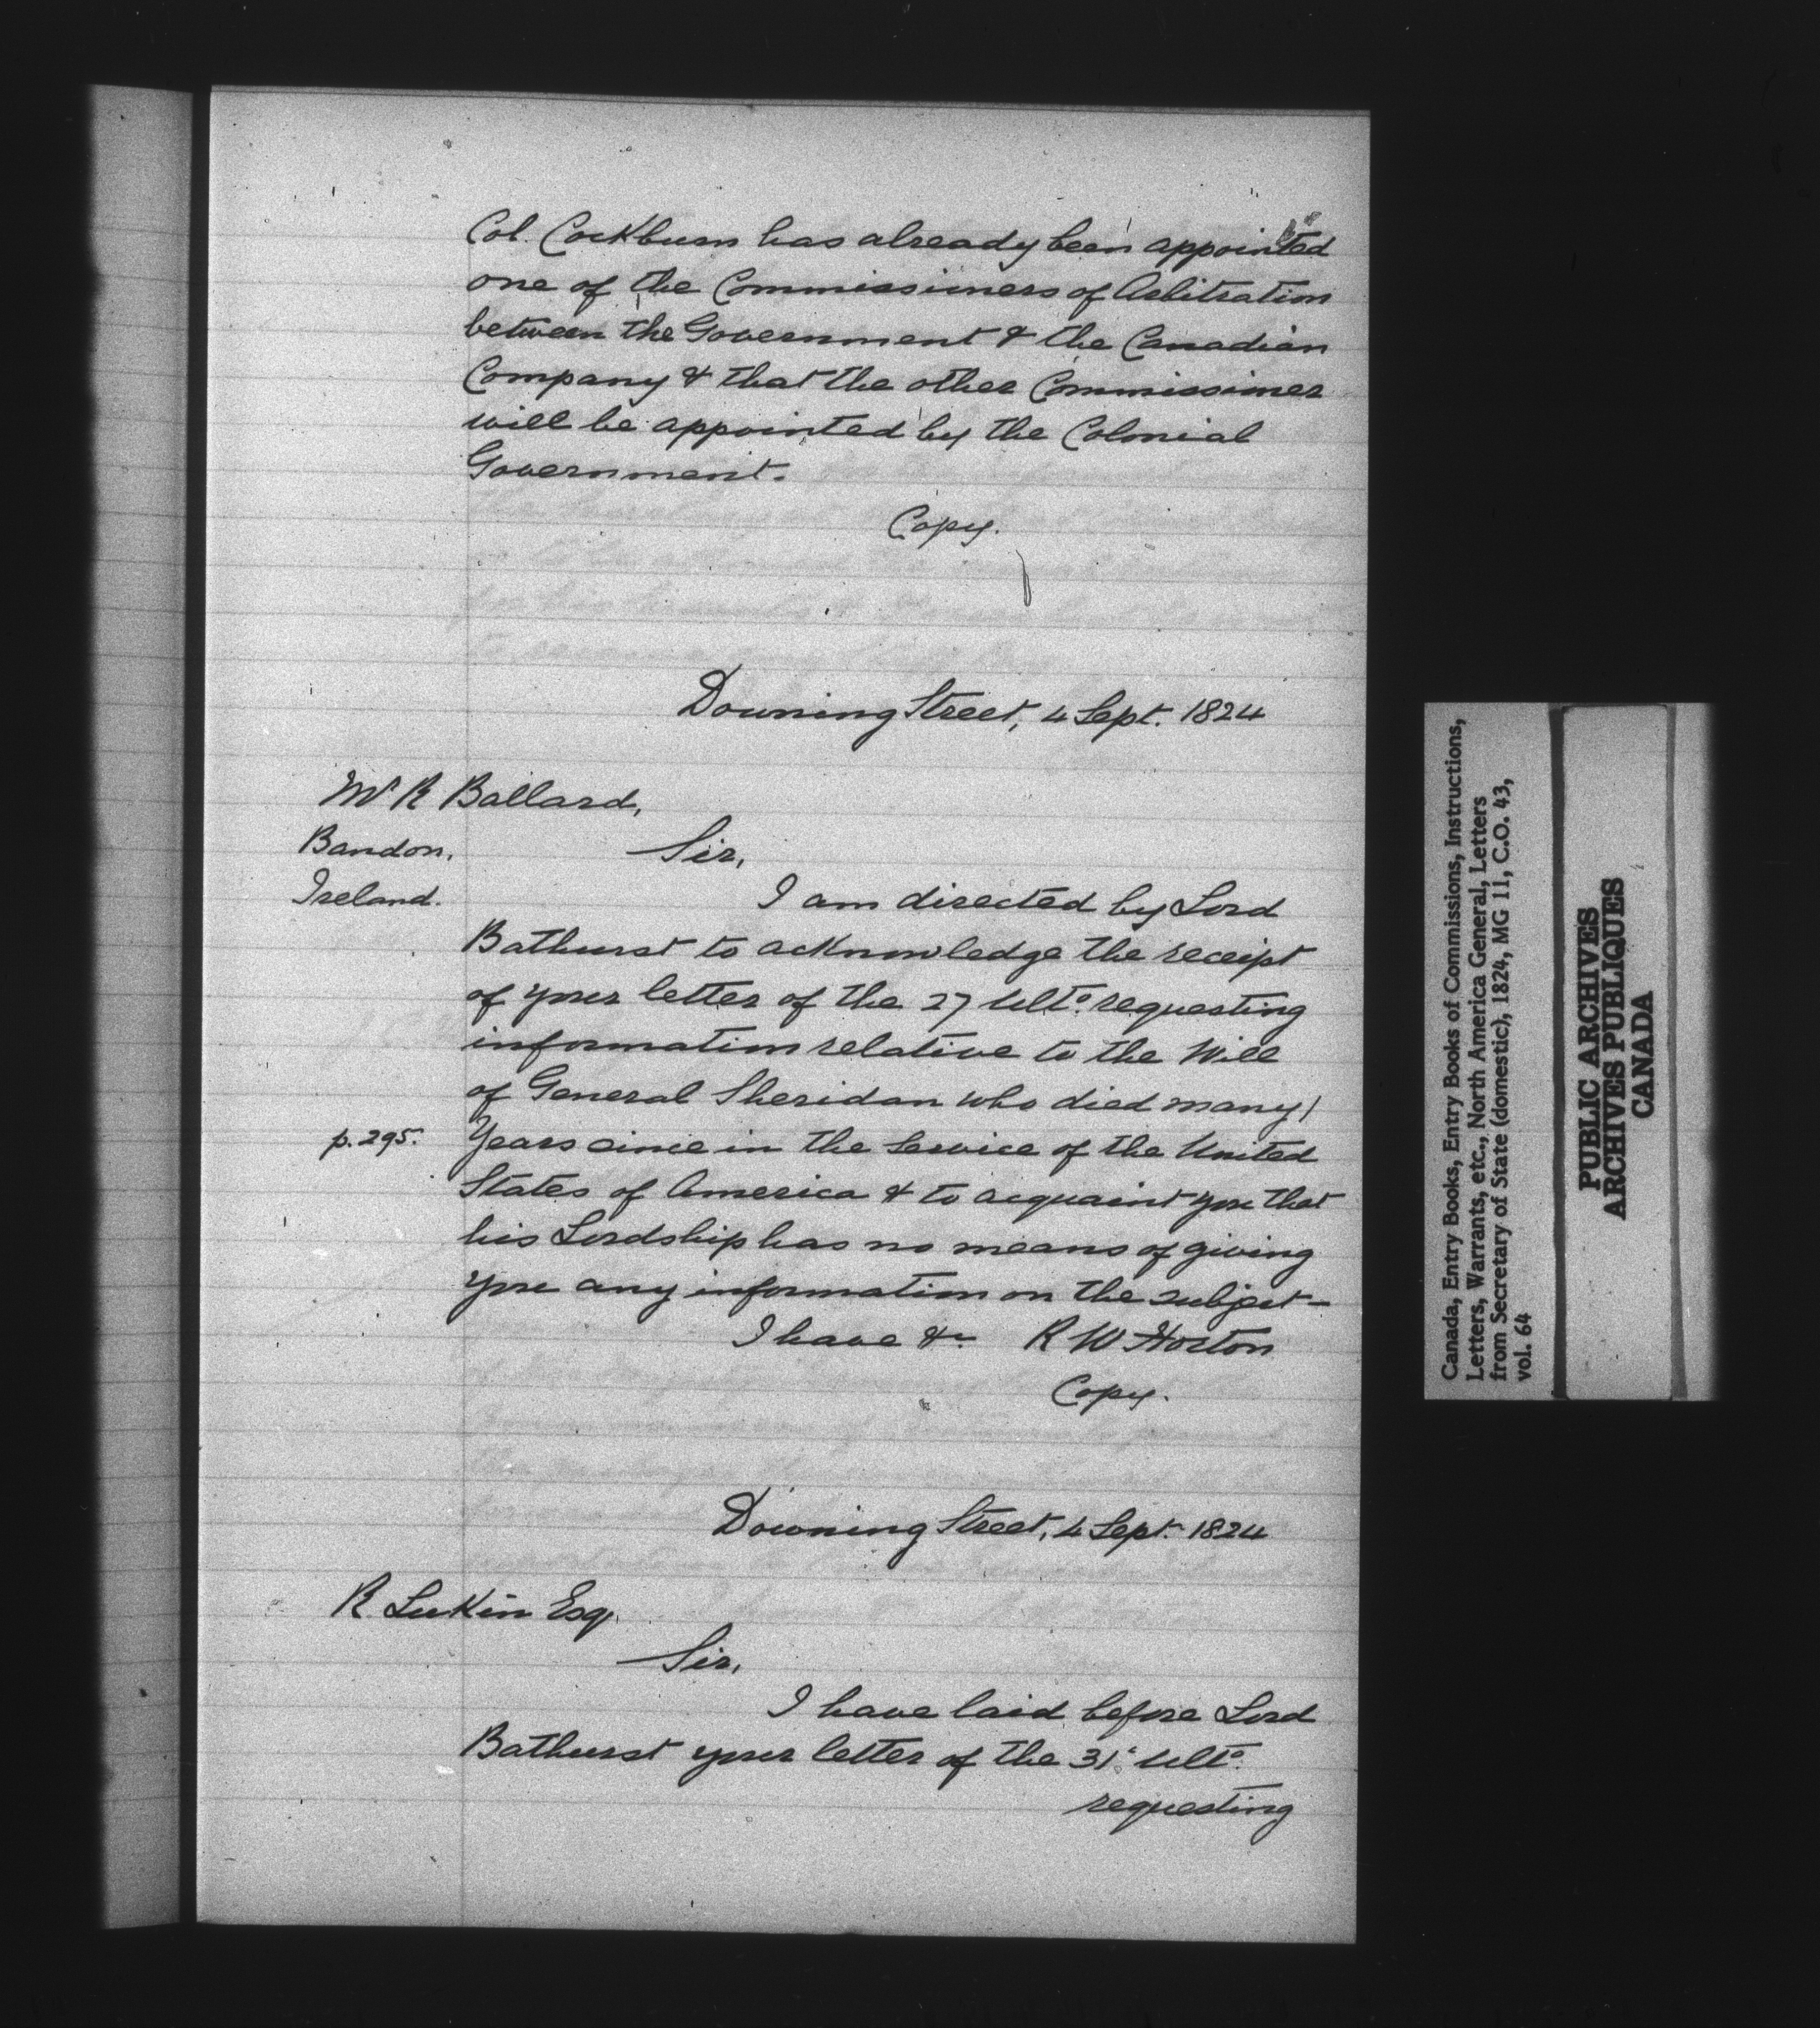 Col. Cockburn has already been appointed
one of the Commissioners of Arbitration
between the Government & the Canadian
Company & that the other Commissioner
will be appointed by the Colonial
Government.
Copy.
Downing Street, 4 Sept. 1824
Mr R Ballard,
Bandon,
Ireland.
Sir,
I am directed by Lord
Bathurst to acknowledge the receipt
of your letter of the 27 Ulto. requesting
information relative to the Will
of General Sheridan who died many
p. 295. Years since in the Service of the United
States of America & to acquaint you that
his Lordship has no means of giving
you any information on the subject—
I have &c R W Horton
Copy.
Downing Street, 4 Sept. 1824
R. Lukin Esq.
Sir,
I have laid before Lord
Bathurst your letter of the 31st Ulto.
requesting
Canada, Entry Books, Entry Books of Commissions, Instructions,
Letters, Warrants, etc., North America General, Letters
from Secretary of State (domestic), 1824, MG 11, C.O. 43,
vol. 64
PUBLIC ARCHIVES
ARCHIVES PUBLIQUES
CANADA